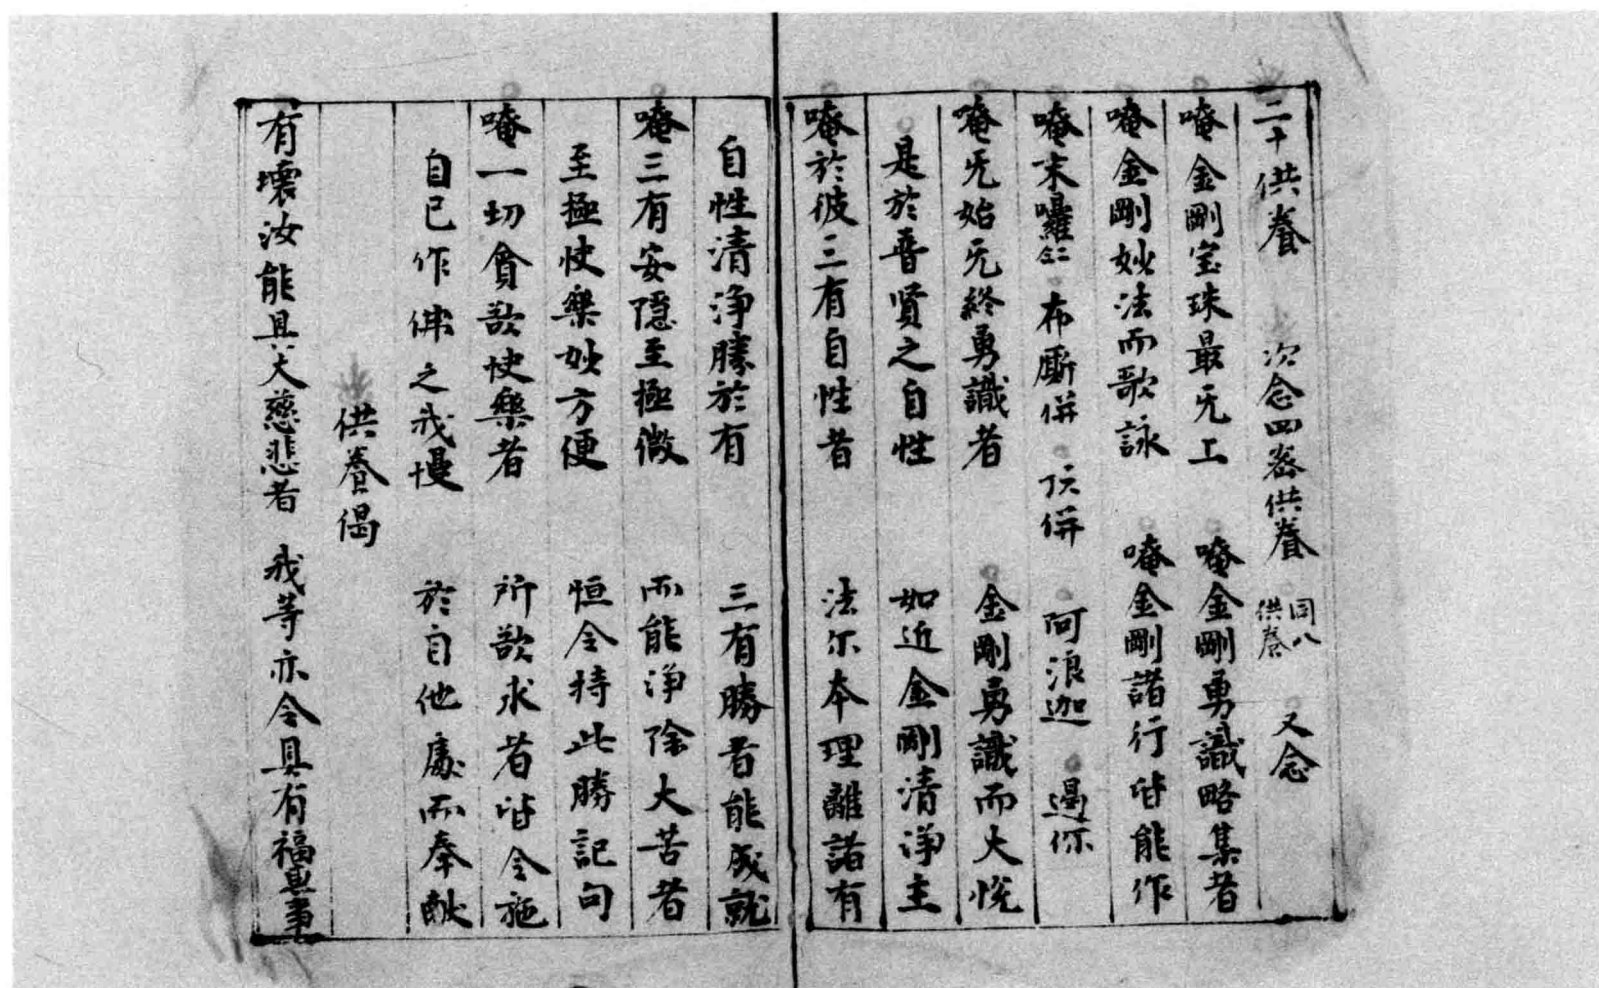 二十供養 次念四密供養 同八供養 又念
唵金剛宝珠最无上 唵金剛勇識略集者
唵金剛妙法而歌詠 唵金剛諸行皆能作
唵末囉 布厮併 𠆤併 阿浪迦 遏你
唵无始无終勇識者 金剛勇識而大悅
是於普賢之自性 如近金剛清浄主
唵於彼三有自性者 法尔本理離諸有
自性清浄勝於有 三有勝者能成就
唵三有安隱至極微 而能浄除大苦者
至極快樂妙方便 恒令持此勝記句
唵一切貪欲快樂者 所欲求者皆令施
自已作佛之我慢 於自他處而奉献
供養偈
有壞汝能具大慈悲者 我等亦令具有福惠事